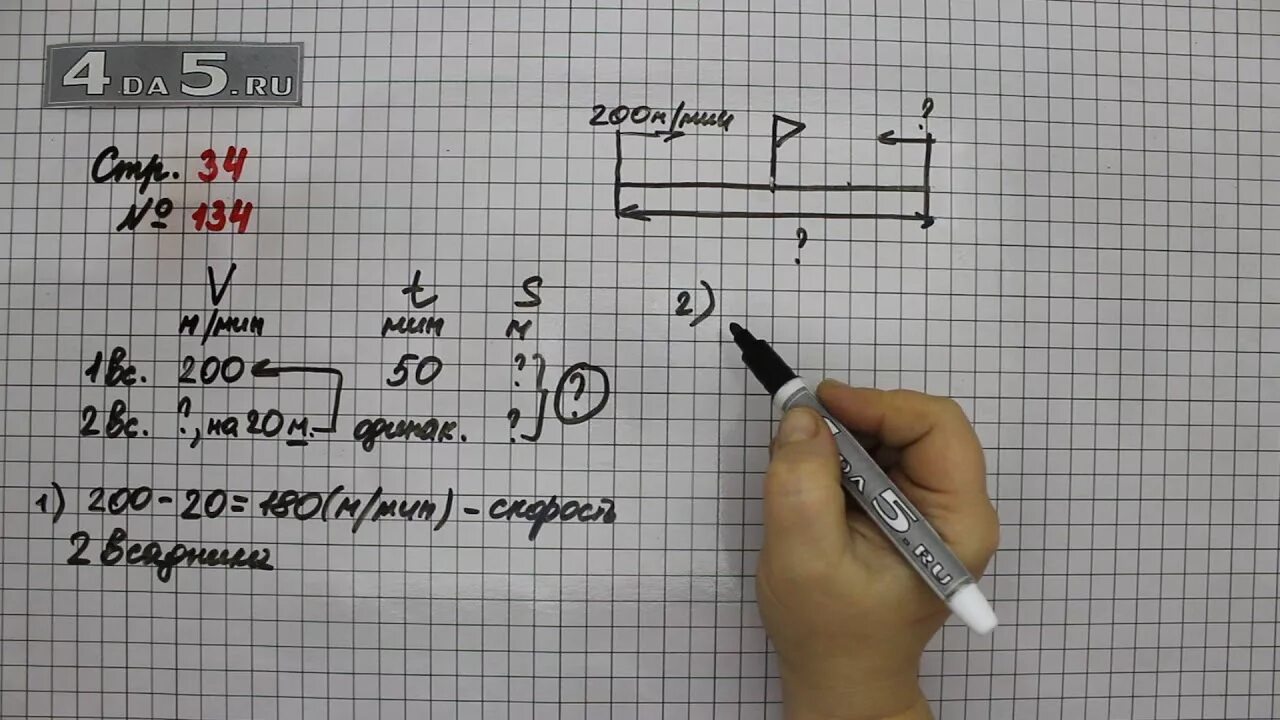 4DA5.RU
Стр. 34
№ 134
200м/мин ?
?
V t S
м/мин мин м
1вс. 200 50 ? ?
2вс. ?, на 20 м. одинак. ?
1) 200-20=180(м/мин) - скорость
2 всадника
2)
DA5.RU